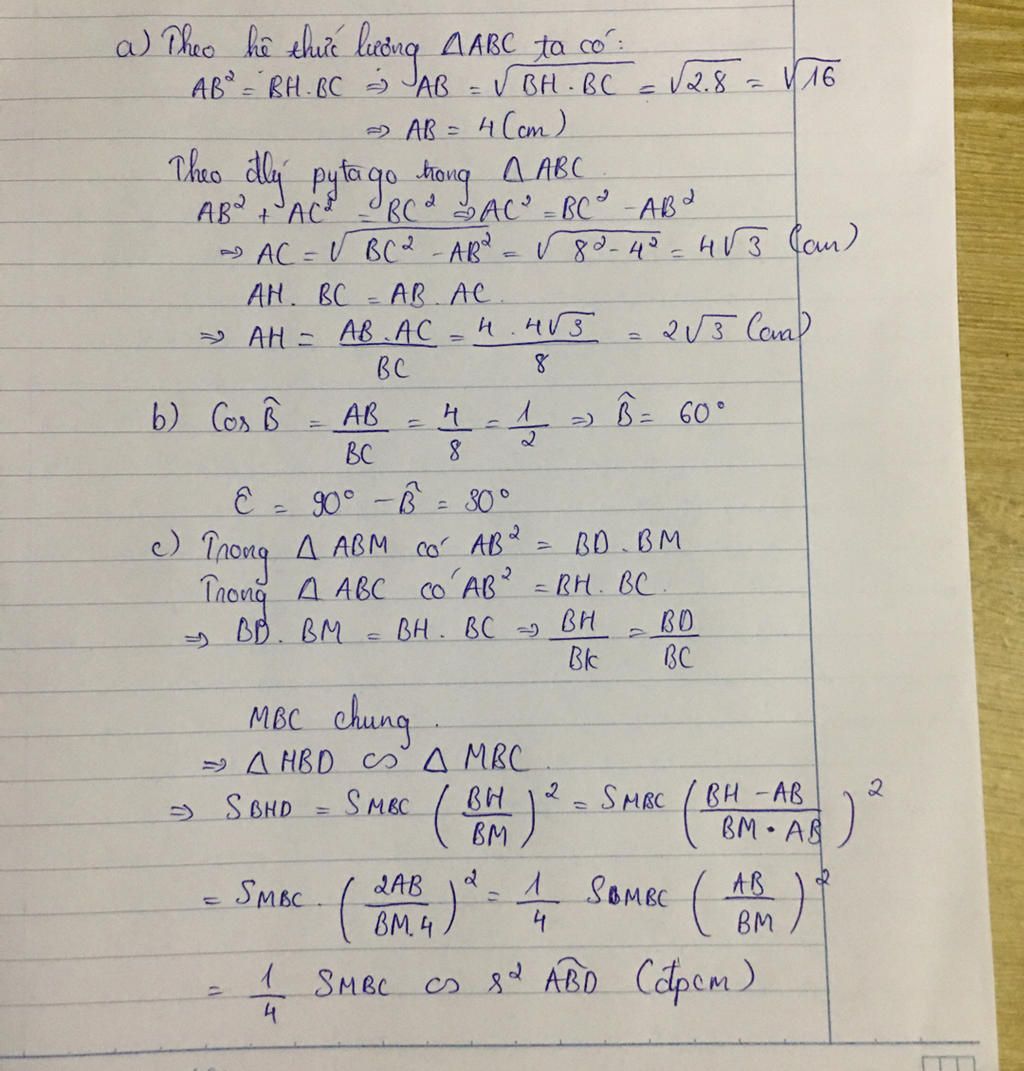 a) Theo hê thức lương ΔABC ta có:
AB² = BH.BC ⇒ AB = √(BH.BC) = √(2.8) = √16
⇒ AB = 4 (cm)
Theo đlý pytago trong ΔABC
AB² + AC² = BC² ⇒ AC² = BC² - AB²
⇒ AC = √(BC² - AB²) = √(8² - 4²) = 4√3 (cm)
AH. BC = AB. AC.
⇒ AH = AB.AC/BC = 4.4√3/8 = 2√3 (cm)
b) Cos B̂ = AB/BC = 4/8 = 1/2 ⇒ B̂ = 60°
Ĉ = 90° - B̂ = 30°
c) Trong Δ ABM có AB² = BD.BM
Trong Δ ABC có AB² = BH.BC.
⇒ BD. BM = BH. BC ⇒ BH/BK = BD/BC
MBC chung.
⇒ Δ HBD ∽ Δ MBC.
⇒ SBHD = SMBC (BH/BM)² = SMBC (BH - AB/BM.AB)²
= SMBC. (2AB/BM.4)² = 1/4 SBMBC (AB/BM)²
= 1/4 SMBC cos² ABD (đpcm)